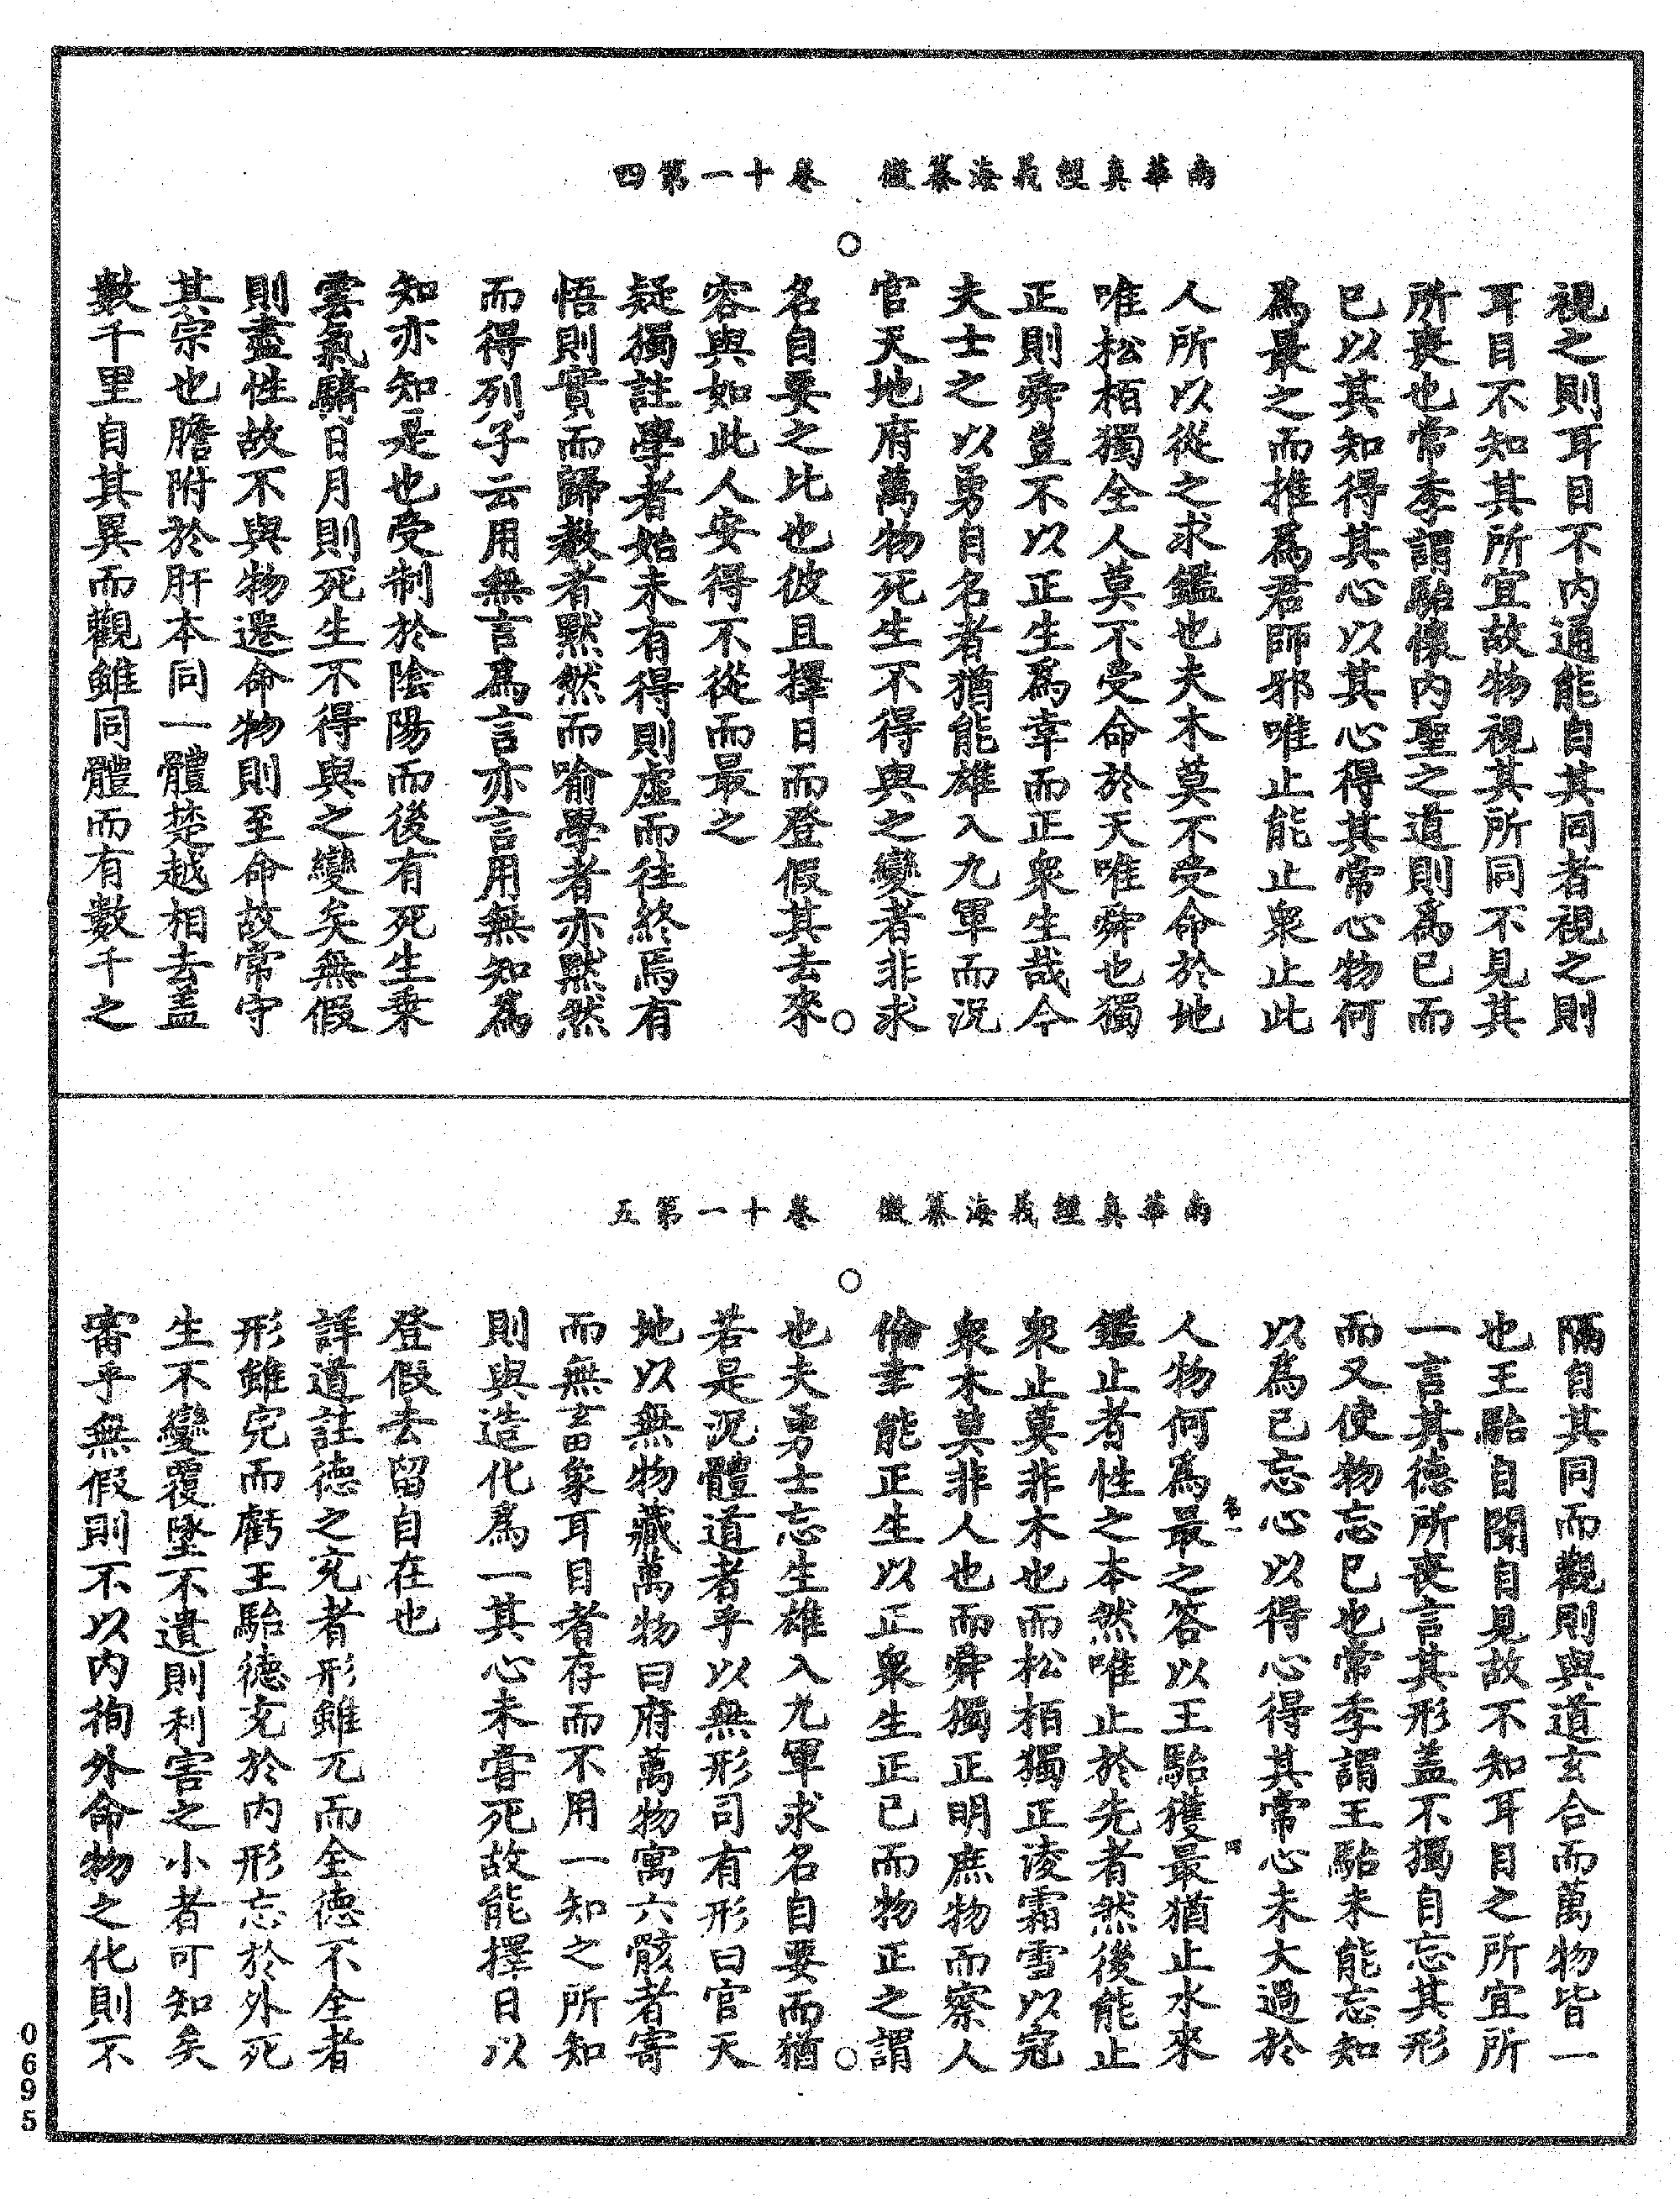 南華真經義海纂微　卷十一第四
視之則耳目不内通能自其同者視之則
耳目不知其所宜故物視其所同不見其
所喪也常季謂駘懷内聖之道則爲已而
已以其知得其心以其心得其常心物何
爲最之而推爲君師邪唯止能止衆止此
人所以從之求鑑也夫木莫不受命於地
唯松栢獨全人莫不受命於天唯舜也獨
正則舜豈不以正生爲幸而正衆生哉今
夫士之以勇自名者猶能雄入九軍而況
官天地府萬物死生不得與之變者非求
名自要之比也彼且擇日而登假其去來
容與如此人安得不從而最之
疑獨註學者始未有得則虛而往終焉有
悟則實而歸教者黙然而喻學者亦黙然
而得列子云用無言爲言亦言用無知爲
知亦知是也受制於陰陽而後有死生乗
雲氣騎日月則死生不得與之變矣無假
則盡性故不與物遷命物則至命故常守
其宗也膽附於肝本同一體楚越相去盖
數千里自其異而觀雖同體而有數千之
南華真經義海纂微　卷十一第五
隔自其同而觀則與道玄合而萬物皆一
也王駘自聞自見故不知耳目之所宜所
一言其德所喪言其形盖不獨自忘其形
而又使物忘已也常季謂王駘未能忘知
以為已忘心以得心得其常心未大過於
人物何爲最之答以王駘獲最猶止水來
鑑止者性之本然唯止於先者然後能止
衆止莫非木也而松栢獨正淩霜雪以冠
衆木莫非人也而舜獨正明庶物而察人
倫幸能正生以正衆生正已而物正之謂
也夫勇士忘生雄入九軍求名自要而猶
若是況體道者乎以無形司有形曰官天
地以無物藏萬物曰府萬物寓六骸者寄
而無畜象耳目者存而不用一知之所知
則與造化爲一其心未甞死故能擇日以
登假去留自在也
詳道註德之充者形雖兀而全德不全者
形雖完而虧王駘德充於内形忘於外死
生不變覆墜不遺則利害之小者可知矣
審乎無假則不以内徇外命物之化則不
0695